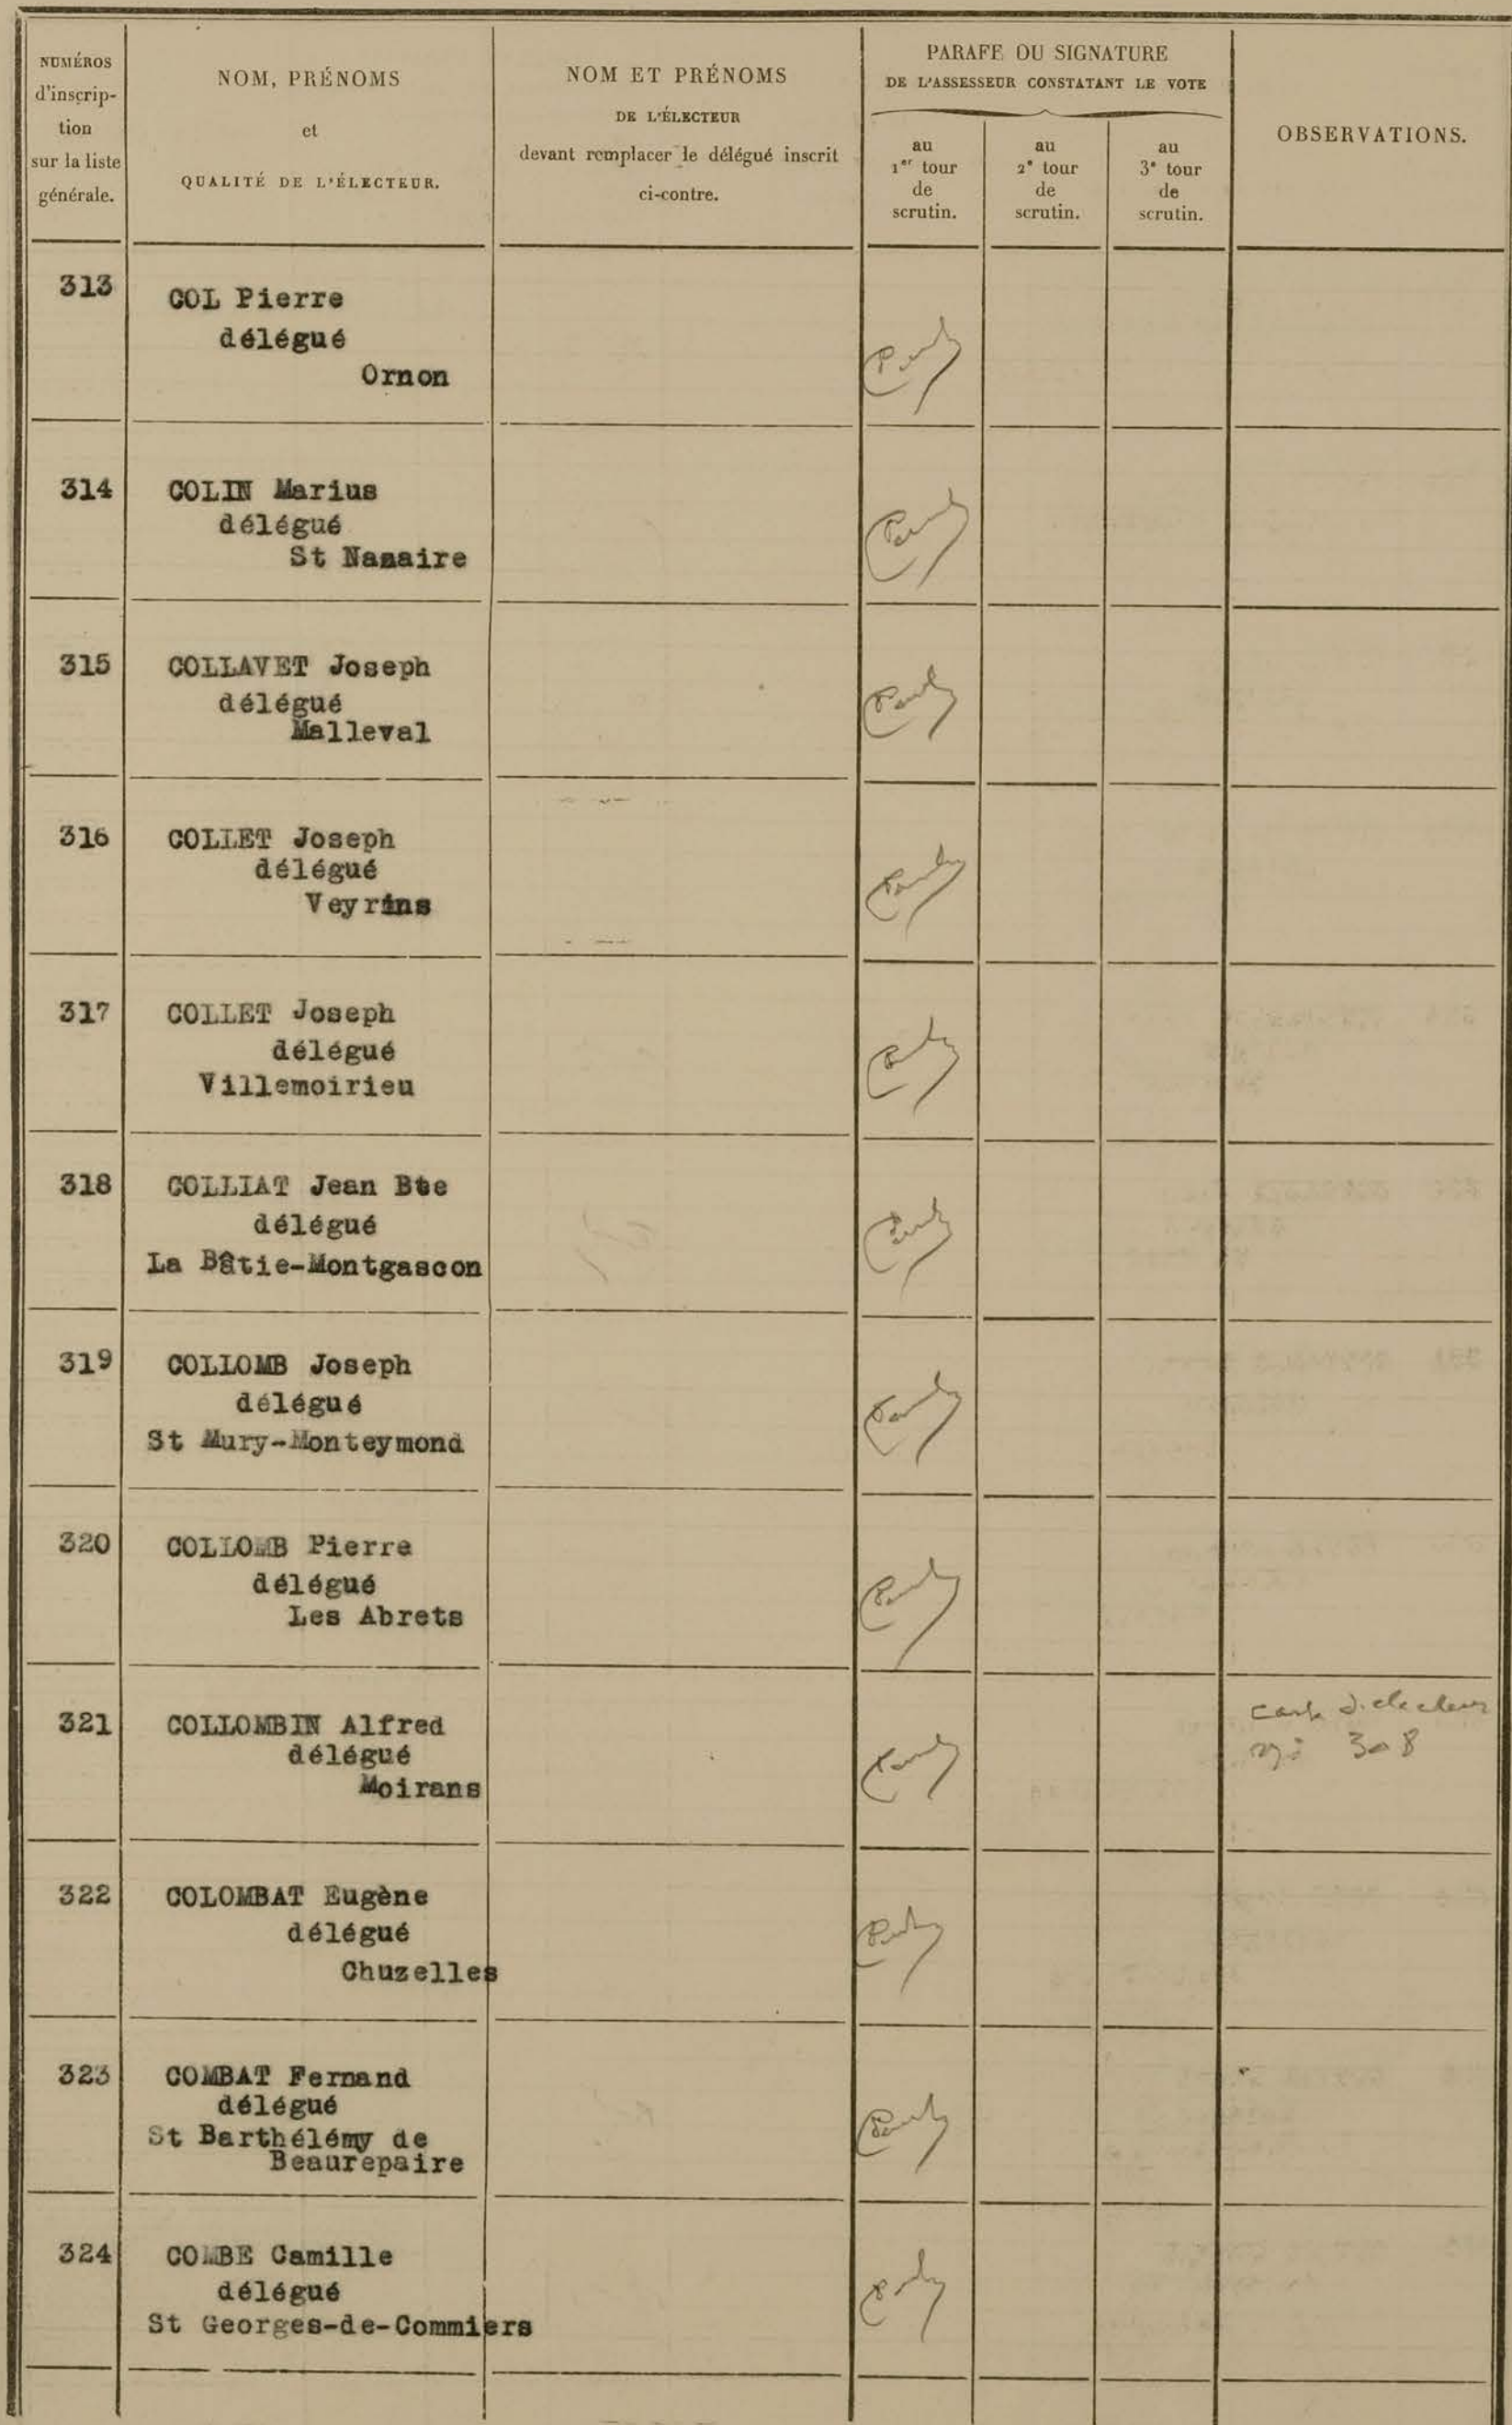 NUMÉROS
d'inscrip-
tion
sur la liste
générale.
NOM, PRÉNOMS
et
QUALITÉ DE L'ÉLECTEUR.
NOM ET PRÉNOMS
DE L'ÉLECTEUR
devant remplacer le délégué inscrit
ci-contre.
PARAFE OU SIGNATURE
DE L'ASSESSEUR CONSTATANT LE VOTE
au
1er tour
de
scrutin.
au
2e tour
de
scrutin.
au
3e tour
de
scrutin.
OBSERVATIONS.
313 COL Pierre
délégué
Ornon
314 COLIN Marius
délégué
St Nazaire
315 COLLAVET Joseph
délégué
Malleval
316 COLLET Joseph
délégué
Veyrins
317 COLLET Joseph
délégué
Villemoirieu
318 COLLIAT Jean Bte
délégué
La Bâtie-Montgascon
319 COLLOMB Joseph
délégué
St Mury-Monteymond
320 COLLOMB Pierre
délégué
Les Abrets
321 COLLOMBIN Alfred
délégué
Moirans
308
322 COLOMBAT Eugène
délégué
Chuzelles
323 COMBAT Fernand
délégué
St Barthélémy de
Beaurepaire
324 COMBE Camille
délégué
St Georges-de-Commiers